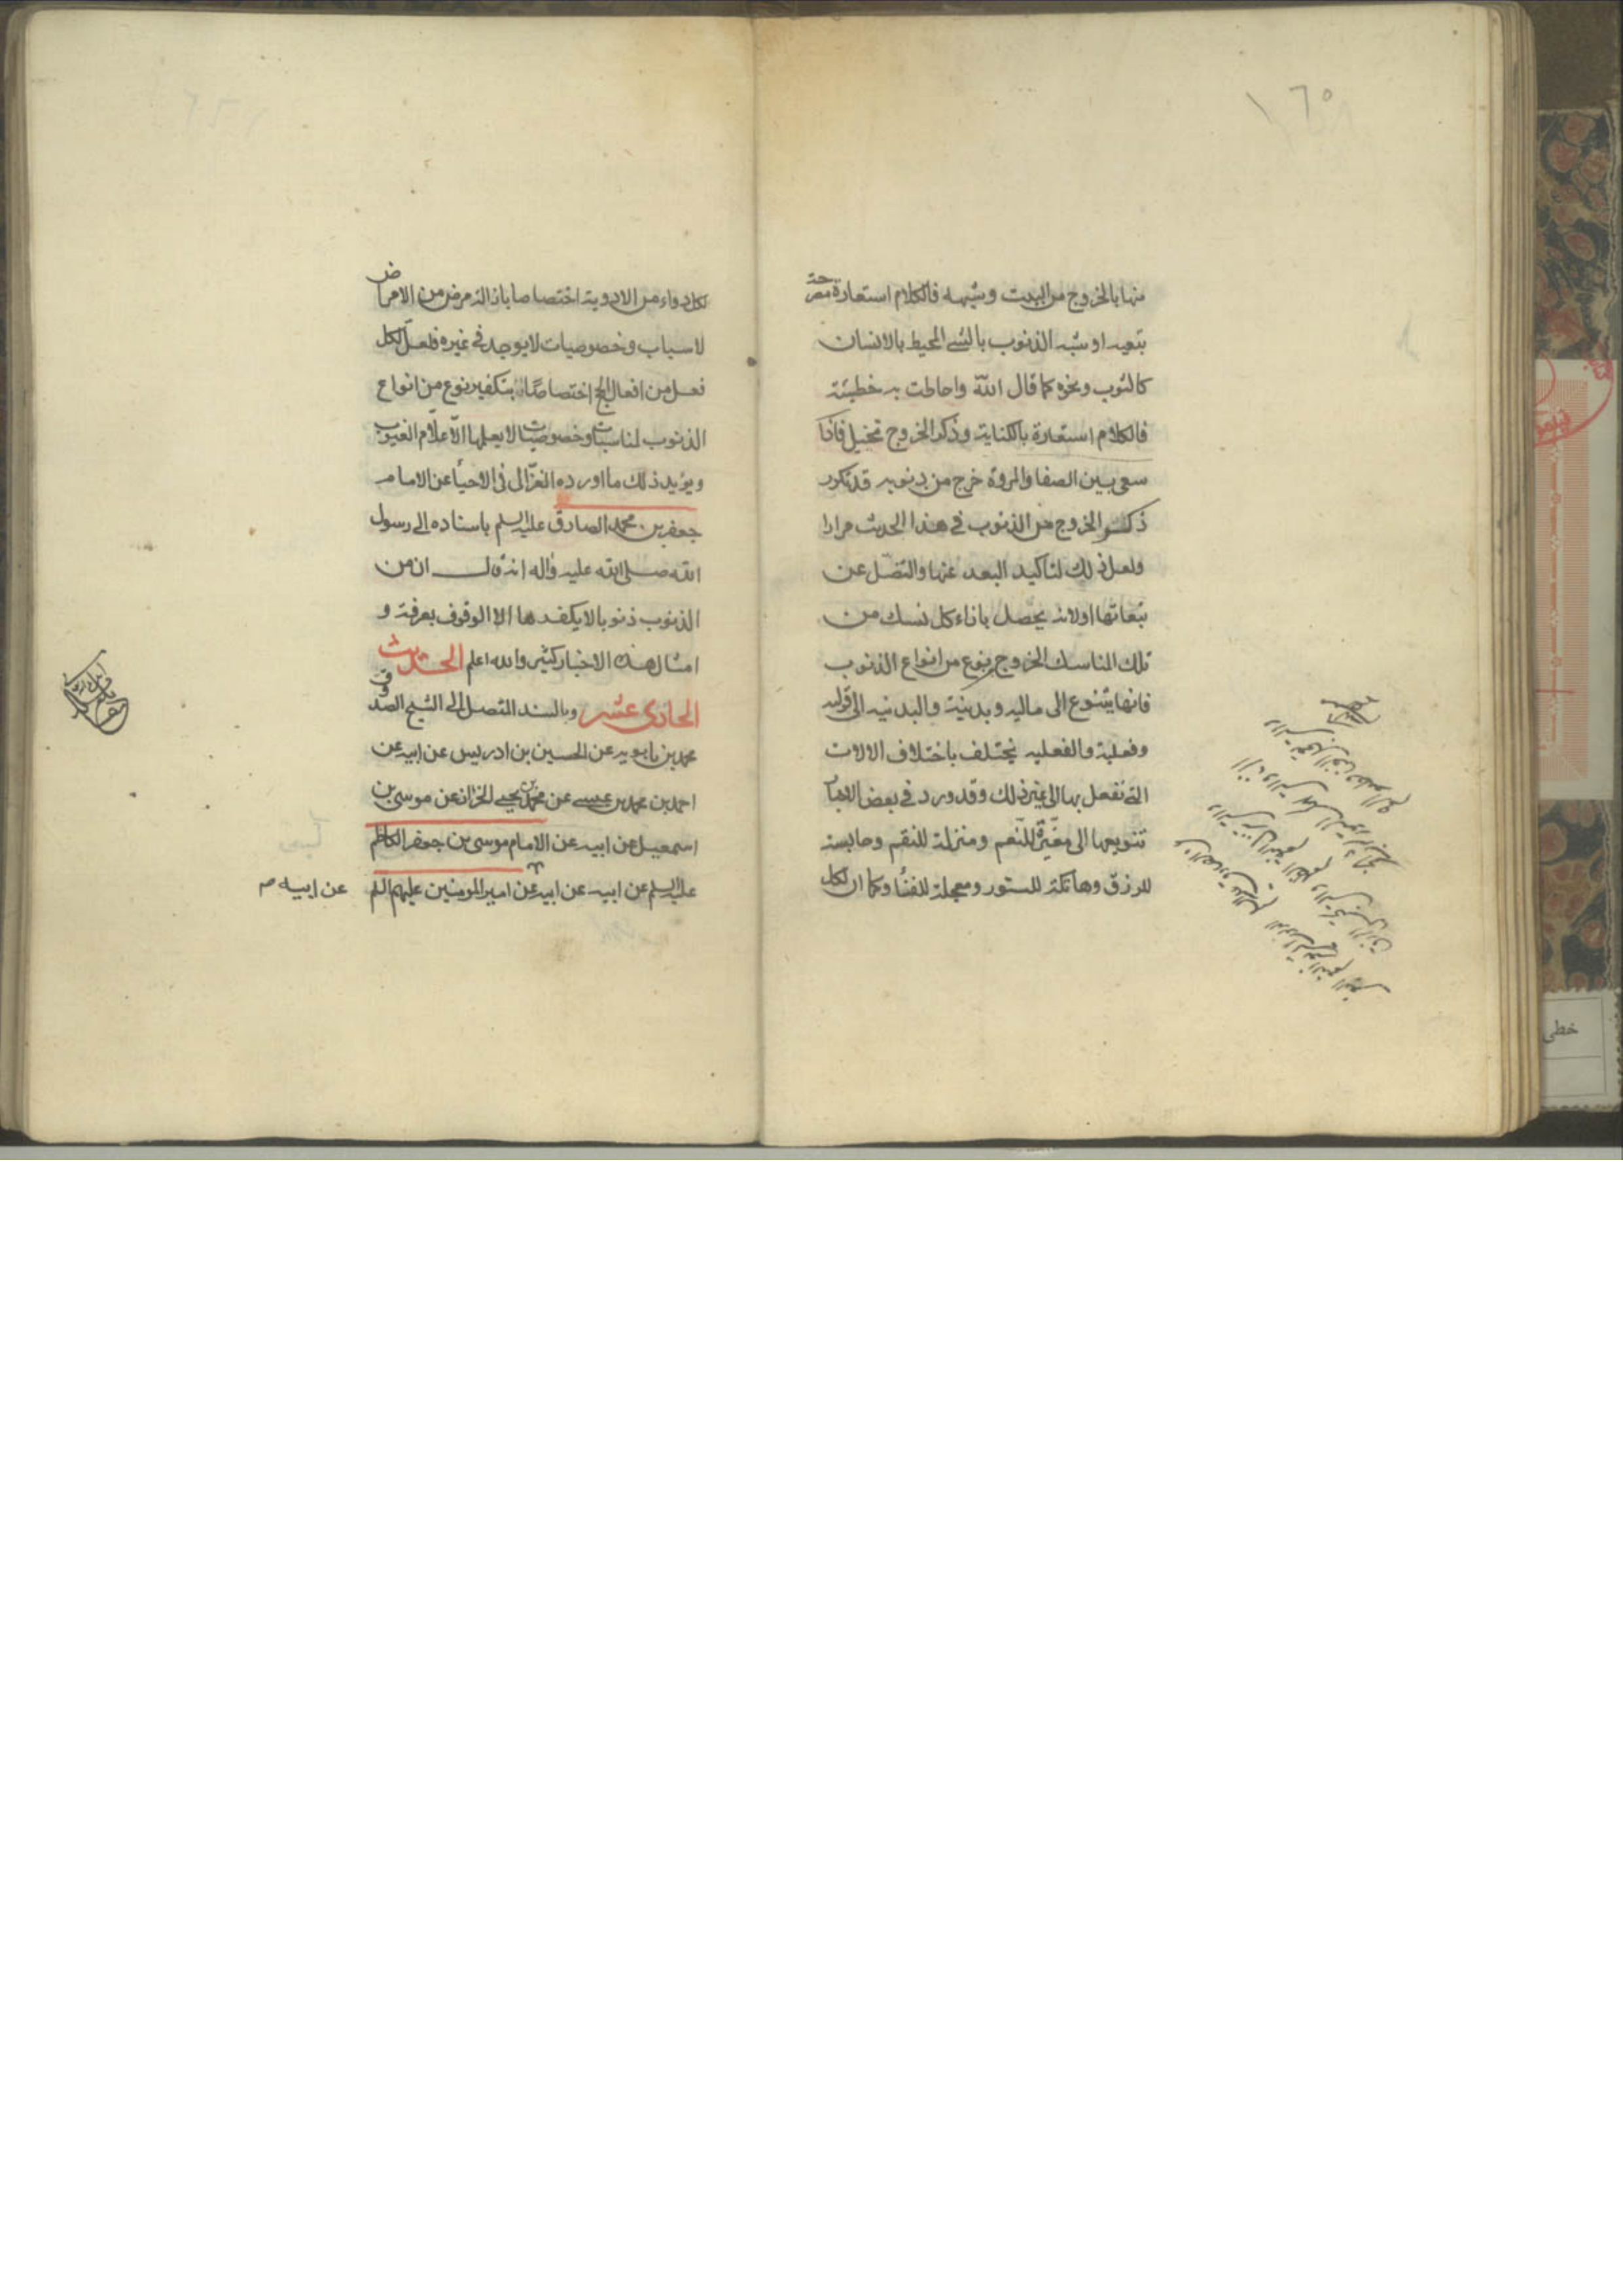 ١٦٥
منها بالخروج من البيت وشبهه فالكلام استعارة مصرحة
بتعيه او شبه الذنوب بالشي المحيط بالانسان
كالثوب ونحوه كما قال الله واحاطت به خطيئته
فالكلام استعارة بالكناية وذكر الخروج تخييل فاذا
سعى بين الصفا والمروة خرج من ذنوبه قد تكرر
ذكر الخروج من الذنوب في هذا الحديث مرارا
ولعل ذلك لتاكيد البعد عنها والتنصل عن
تبعاتها اولانه يحصل باذاء كل نسك من
تلك المناسك الخروج بنوع من انواع الذنوب
فانها يتنوع الى ماليه وبدنية والبدنيه الى قوليه
وفعلية والفعليه تختلف باختلاف الالات
التي تفعل بها الى غير ذلك وقد ورد في بعض
تنويعها الى مغيرة للنعم ومنزلة للنقم وحابسة
للرزق وهاتكة للستور ومعجلة للفنا وكما ان لكل
لكل دواء من الادوية اختصاصا بازالة مرض من الامراض
لاسباب وخصوصيات لايوجد في غيره فلعل لكل
فعل من افعال الحج اختصاصا بتكفير نوع من انواع
الذنوب لمناسبات وخصوصيات لا يعلمها الا علام الغيوب
ويؤيد ذلك ما اورده الغزالى فى الاحيا عن الامام
جعفر بن محمد الصادق عليه السلم باسناده الى رسول
الله صلى الله عليه واله انه قال ان من
الذنوب ذنوبا لا يكفرها الا الوقوف بعرفة و
امثال هذه الاخبار كثير والله اعلم الحديث
الحادى عشر وبالسند المتصل الى الشيخ الصدوق
محمد بن بابويه عن الحسين بن ادريس عن ابيه عن
احمد بن محمد بن عيسى عن محمد بن يحيى الخزاز عن موسى بن
اسمعيل عن ابيه عن الامام موسى بن جعفر الكاظم
عليه السلم عن ابيه عن ابيه عن امير المومنين عليهم السلم
عن ابيه
خطى